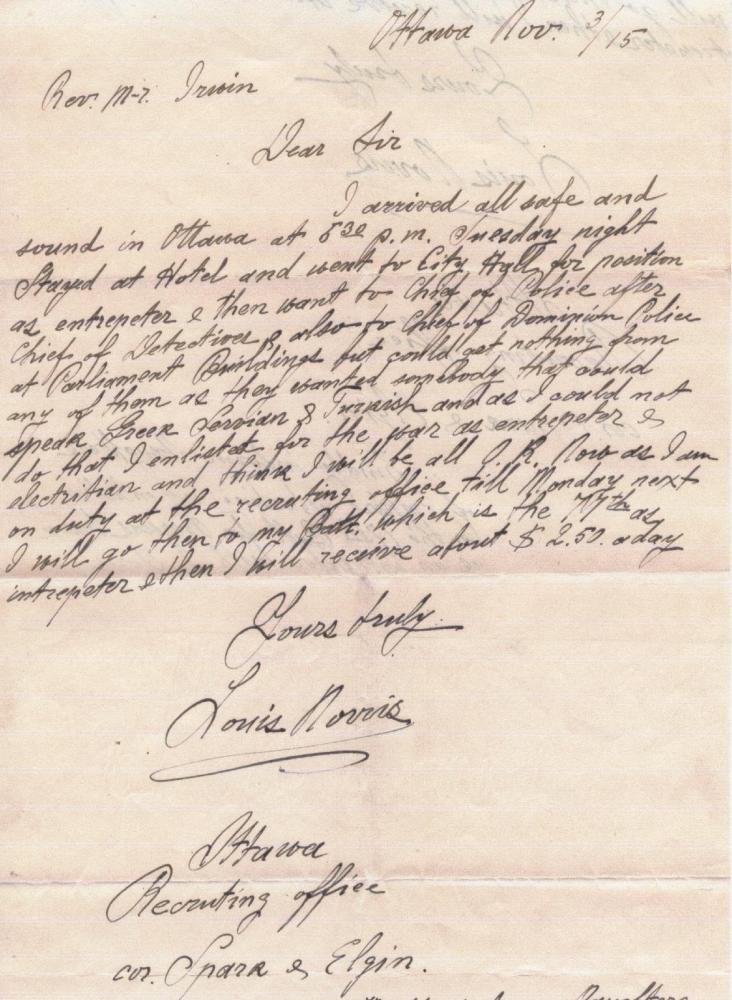 Ottawa Nov. 3/15
Rev. Mr. Irwin
Dear Sir
I arrived all safe and
sound in Ottawa at 5 30 p.m. Tuesday night
Stayed at Hotel and went to City Hyll for position
as entrepeter & then want to Chief of Police after
Chief of Detectives & also to Chief of Dominion Police
at Parliament Buildings but could get nothing from
any of them as they wanted somebody that could
speak Greek Servian & Turkish and as I could not
do that I enlisted for the war as entrepeter &
electritian and think I will be all O.R. Now as I am
on duty at the recruting office till Monday next
I will go then to my Batt. which is the 77th as
intrepeter & then I will receive about $ 2.50. a day
Yours truly
Louis Norris
Ottawa
Recruting office
cor. Spark & Elgin.